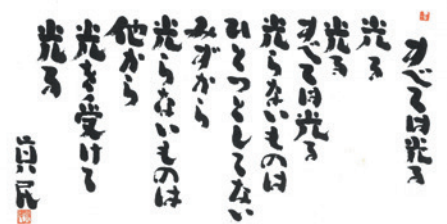 すべては光る
光る
光る
すべては光る
光らないものは
ひとつとしてない
みずから
光らないものは
他から
光を受けて
光る
真民